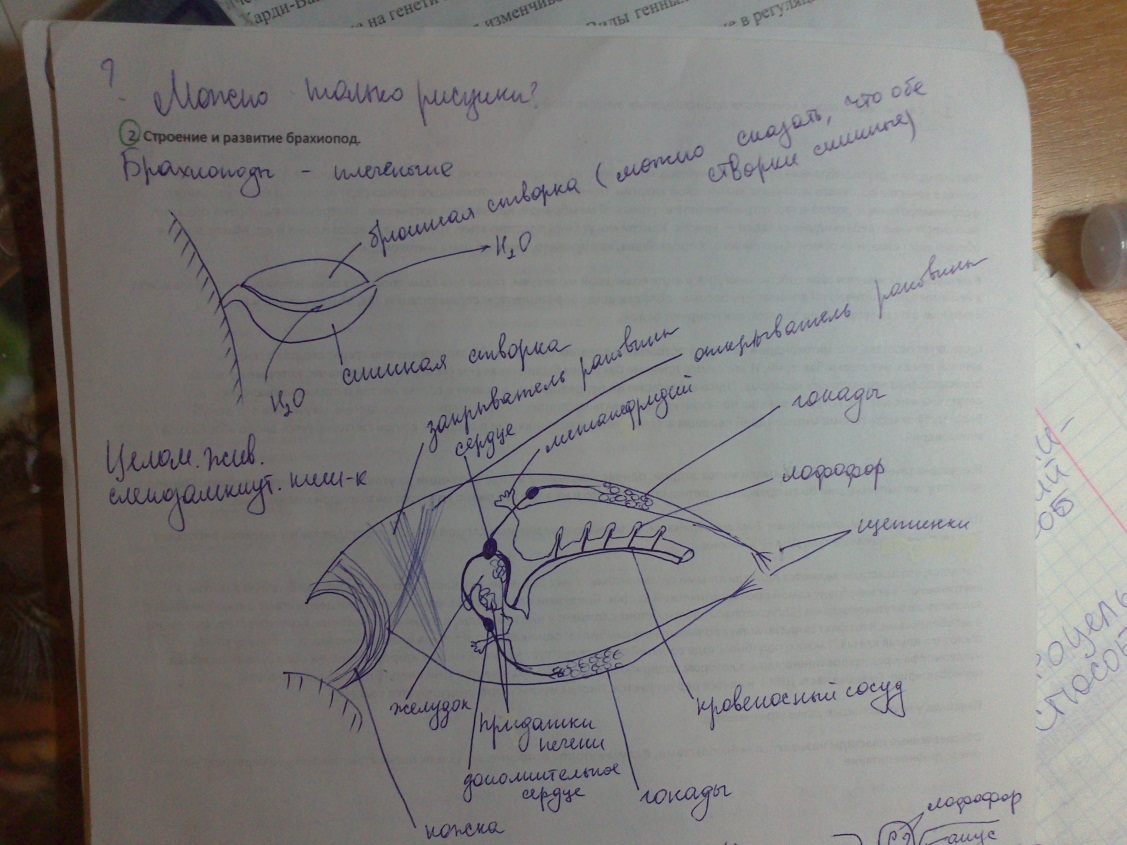 Харди-Ва
е на генети
изменчиво
Виды генны
е в регуляц
?
Можно только рисунки?
2 Строение и развитие брахиопод.
Брахиоподы - плеченогие
брюшная створка (можно сказать, что обе
створки спинные)
H₂O
спинная створка
H₂O
закрыватель раковины
открыватель раковины
сердце
метанефридий
гонады
Целом. жив.
слепозамкнут. киш-к
лофофор
щетинки
желудок
придатки
печени
кровеносный сосуд
дополнительное
сердце
гонады
ножка
лофофор
анус
способ